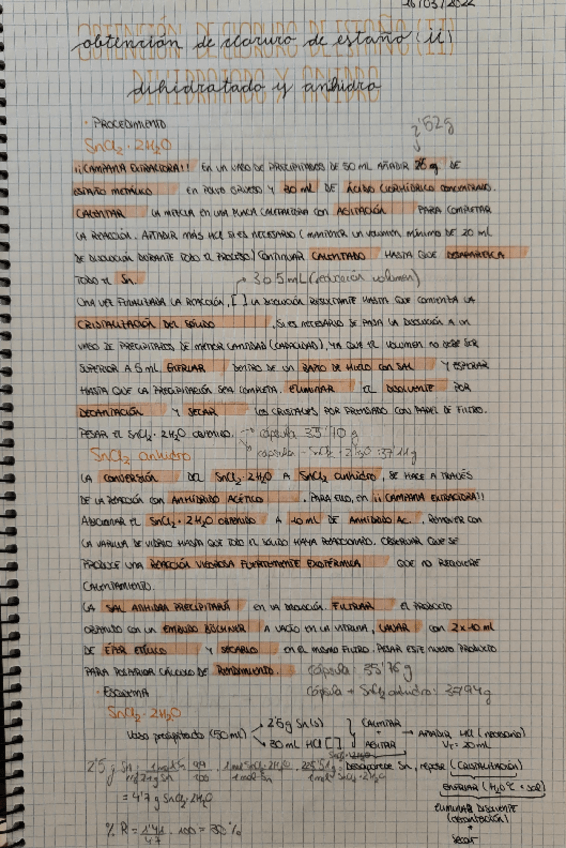 16/03/2022
obtención de cloruro de estaño (ii)
dihidratado y anhidro
· PROCEDIMIENTO
SnCl₂·2H₂O
¡¡CAMPANA EXTRACTORA!! EN UN VASO DE PRECIPITADOS DE 50 mL AÑADIR g DE
ESTAÑO METÁLICO EN POLVO GRUESO Y 30 mL DE ÁCIDO CLORHÍDRICO CONCENTRADO.
CALENTAR LA MEZCLA EN UNA PLACA CALEFACTORA CON AGITACIÓN PARA COMPLETAR
LA REACCIÓN. AÑADIR MÁS HCl SI ES NECESARIO (MANTENER UN VOLUMEN MÍNIMO DE 20 mL
DE DISOLUCIÓN DURANTE TODO EL PROCESO) CONTINUAR CALENTADO HASTA QUE DESAPAREZCA
TODO EL Sn.
UNA VEZ FINALIZADA LA REACCIÓN, [ ] LA DISOLUCIÓN RESULTANTE HASTA QUE COMIENZA LA
CRISTALIZACIÓN DEL SÓLIDO, SI ES NECESARIO SE PASA LA DISOLUCIÓN A UN
VASO DE PRECIPITADOS DE MENOR CANTIDAD (CAPACIDAD), YA QUE EL VOLUMEN NO DEBE SER
SUPERIOR A 5 mL. ENFRIAR DENTRO DE UN BAÑO DE HIELO CON SAL Y ESPERAR
HASTA QUE LA PRECIPITACIÓN SEA COMPLETA. ELIMINAR EL DISOLVENTE POR
DECANTACIÓN Y SECAR LOS CRISTALES POR PRENSADO CON PAPEL DE FILTRO.
PESAR EL SnCl₂·2H₂O OBTENIDO. → cápsula 35'70 g
cápsula + SnCl₂·2H₂O: 37'11g
SnCl₂ anhidro
LA CONVERSIÓN DEL SnCl₂·2H₂O A SnCl₂ anhidro, SE HACE A TRAVÉS
DE LA REACCIÓN CON ANHÍDRIDO ACÉTICO. PARA ELLO, EN ¡¡CAMPANA EXTRACTORA!!
ADICIONAR EL SnCl₂·2H₂O OBTENIDO A 10 mL DE ANHÍDRIDO AC., REMOVER CON
LA VARILLA DE VIDRIO HASTA QUE TODO EL SÓLIDO HAYA REACCIONADO. OBSERVAR QUE SE
PRODUCE UNA REACCIÓN VIGOROSA FUERTEMENTE EXOTÉRMICA QUE NO REQUIERE
CALENTAMIENTO.
LA SAL ANHIDRA PRECIPITARÁ EN LA DISOLUCIÓN. FILTRAR EL PRODUCTO
OBTENIDO CON UN EMBUDO BÜCHNER A VACÍO EN LA VITRINA, LAVAR CON 2x10 ml
DE ÉTER ETÍLICO Y SECARLO EN EL MISMO FILTRO. PESAR ESTE NUEVO PRODUCTO
PARA POSTERIOR CÁLCULO DE RENDIMIENTO. cápsula: 35'76 g
· ESQUEMA cápsula + SnCl₂ anhidro: 37'94g
SnCl₂·2H₂O
Vaso precipitado (50ml) 2'5g Sn(s) CALENTAR
30 mL HCl [ ] + AGITAR → AÑADIR HCl (necesario)
V = 20 mL
DESAPARECE Sn, reposo (CRISTALIZACIÓN)
ENFRIAR (H₂O°C + SAL)
ELIMINAR DISOLVENTE
(decantación)
+
secar
= 4'7 g SnCl₂·2H₂O
% R = 1'41/4'7 · 100 = 30 %